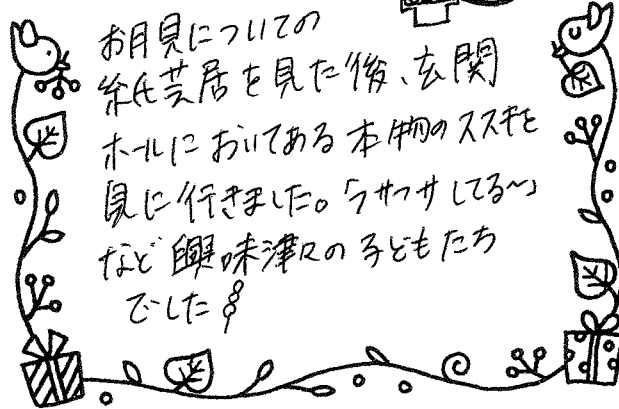 お月見についての
紙芝居を見た後、玄関
ホールにおいてある本物のススキを
見に行きました。「フサフサしてる〜」
など興味津々の子どもたち
でした